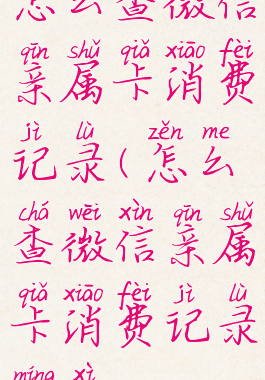 怎么查微信
qīn shǔ qiǎ xiāo fèi
亲属卡消费
jì lù zěn me
记录(怎么
chá wēi xìn qīn shǔ
查微信亲属
qiǎ xiāo fèi jì lù
卡消费记录
míng xì